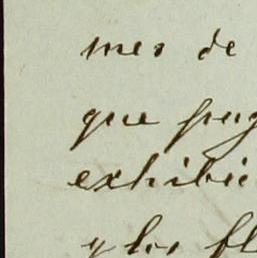 mes de
que pag
exhibie
y los fl